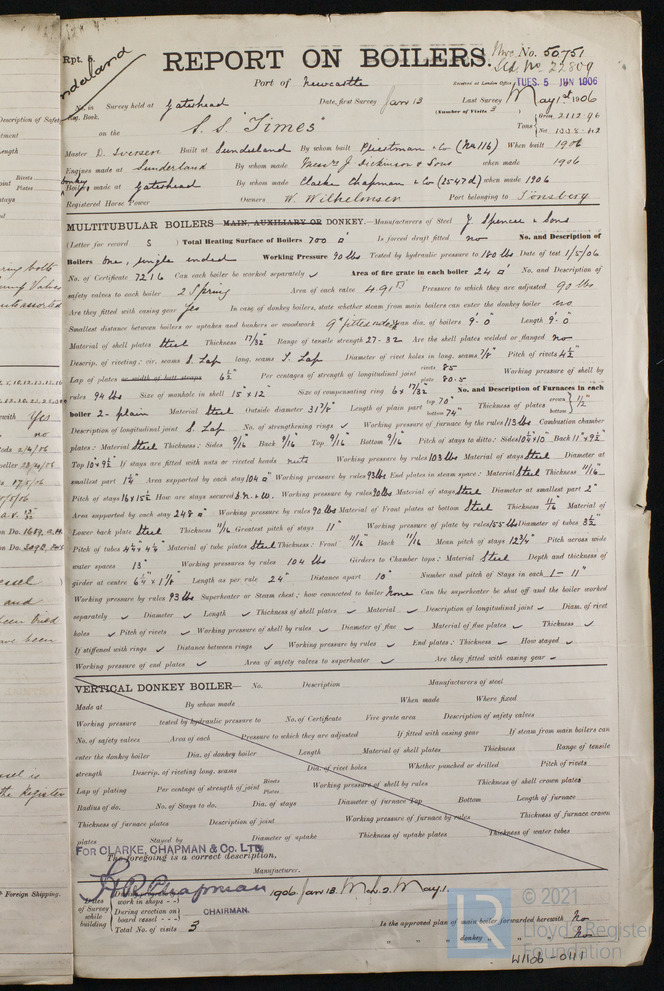 Rpt. 5.
REPORT ON BOILERS.
No. 50751
No 22809
Port of Newcastle
Received at London Office TUES. 5 JUN 1906
No. in Survey held at Gateshead Date, first Survey Jan 13 Last Survey May 1st 1906
Reg. Book. (Number of Visits 3)
on the S.S. "Times" Tons Gross 2112.96 Net 1338.62
Master D. Iversen Built at Sunderland By whom built Priestman & Co (No 116) When built 1906
Engines made at Sunderland By whom made Messrs J Dickinson & Sons when made 1906
Boilers made at Gateshead By whom made Clarke Chapman & Co (2547d) when made 1906
Registered Horse Power Owners W. Wilhelmsen Port belonging to Tönsberg
MULTITUBULAR BOILERS MAIN, AUXILIARY OR DONKEY.— Manufacturers of Steel J. Spencer & Sons
(Letter for record S) Total Heating Surface of Boilers 700 □' Is forced draft fitted no No. and Description of
Boilers One, single ended Working Pressure 90 lbs Tested by hydraulic pressure to 180 lbs Date of test 1/5/06
No. of Certificate 7216 Can each boiler be worked separately ✓ Area of fire grate in each boiler 24 □' No. and Description of
safety valves to each boiler 2 Spring Area of each valve 4.91 □" Pressure to which they are adjusted 90 lbs
Are they fitted with easing gear Yes In case of donkey boilers, state whether steam from main boilers can enter the donkey boiler no
Smallest distance between boilers or uptakes and bunkers or woodwork Mean dia. of boilers 9'-0" Length 9'-0"
Material of shell plates Steel Thickness 17/32 Range of tensile strength 27-32 Are the shell plates welded or flanged no
Descrip. of riveting: cir. seams S. Lap long. seams J. Lap Diameter of rivet holes in long. seams 7/8" Pitch of rivets 4½"
Lap of plates or width of butt straps 6½" Per centages of strength of longitudinal joint rivets 85 plate 80.5 Working pressure of shell by
rules 94 lbs Size of manhole in shell 15" x 12" Size of compensating ring 6 x 17/32" No. and Description of Furnaces in each
boiler 2 - plain Material Steel Outside diameter 31⅞" Length of plain part top 70" bottom 74" Thickness of plates crown bottom } 1/2"
Description of longitudinal joint S. Lap No. of strengthening rings ✓ Working pressure of furnace by the rules 113 lbs Combustion chamber
plates: Material Steel Thickness: Sides 9/16 Back 9/16 Top 9/16 Bottom 9/16 Pitch of stays to ditto: Sides 10¼ x 10" Back 11" x 9½"
Top 10 x 9½ If stays are fitted with nuts or riveted heads nuts Working pressure by rules 103 lbs Material of stays Steel Diameter at
smallest part 1¼" Area supported by each stay 104 □" Working pressure by rules 93 lbs End plates in steam space: Material Steel Thickness 11/16"
Pitch of stays 16 x 15½ How are stays secured D.n.&w. Working pressure by rules 90 lbs Material of stays Steel Diameter at smallest part 2"
Area supported by each stay 248 □" Working pressure by rules 90 lbs Material of Front plates at bottom Steel Thickness 11/16 Material of
Lower back plate Steel Thickness 11/16 Greatest pitch of stays 11" Working pressure of plate by rules 155 lbs Diameter of tubes 3½"
Pitch of tubes 4¾ x 4¾ Material of tube plates Steel Thickness: Front 11/16 Back 11/16 Mean pitch of stays 12¾" Pitch across wide
water spaces 13" Working pressures by rules 104 lbs Girders to Chamber tops: Material Steel Depth and thickness of
girder at centre 6¼ x 1⅛" Length as per rule 24" Distance apart 10" Number and pitch of Stays in each 1 - 11"
Working pressure by rules 93 lbs Superheater or Steam chest; how connected to boiler None Can the superheater be shut off and the boiler worked
separately ✓ Diameter ✓ Length ✓ Thickness of shell plates ✓ Material ✓ Description of longitudinal joint ✓ Diam. of rivet
holes ✓ Pitch of rivets ✓ Working pressure of shell by rules ✓ Diameter of flue ✓ Material of flue plates ✓ Thickness ✓
If stiffened with rings ✓ Distance between rings ✓ Working pressure by rules ✓ End plates: Thickness ✓ How stayed ✓
Working pressure of end plates ✓ Area of safety valves to superheater ✓ Are they fitted with easing gear ✓
VERTICAL DONKEY BOILER— No. Description Manufacturers of steel
Made at By whom made When made Where fixed
Working pressure tested by hydraulic pressure to No. of Certificate Fire grate area Description of safety valves
No. of safety valves Area of each Pressure to which they are adjusted If fitted with easing gear If steam from main boilers can
enter the donkey boiler Dia. of donkey boiler Length Material of shell plates Thickness Range of tensile
strength Descrip. of riveting long. seams Dia. of rivet holes Whether punched or drilled Pitch of rivets
Lap of plating Per centage of strength of joint Rivets Plates Working pressure of shell by rules Thickness of shell crown plates
Radius of do. No. of Stays to do. Dia. of stays Diameter of furnace Top Bottom Length of furnace
Thickness of furnace plates Description of joint Working pressure of furnace by rules Thickness of furnace crown
plates Stayed by Diameter of uptake Thickness of uptake plates Thickness of water tubes
FOR CLARKE, CHAPMAN & Co. LTD.
The foregoing is a correct description,
Manufacturer.
Chapman
CHAIRMAN.
Dates of Survey while building During progress of work in shops - - 1906 Jan 13. Mar. 2. May 1.
During erection on board vessel - -
Total No. of visits 3
Is the approved plan of main boiler forwarded herewith No
" " " donkey " " " No
© 2021
LR
Lloyd's Register
Foundation
W1106-0111